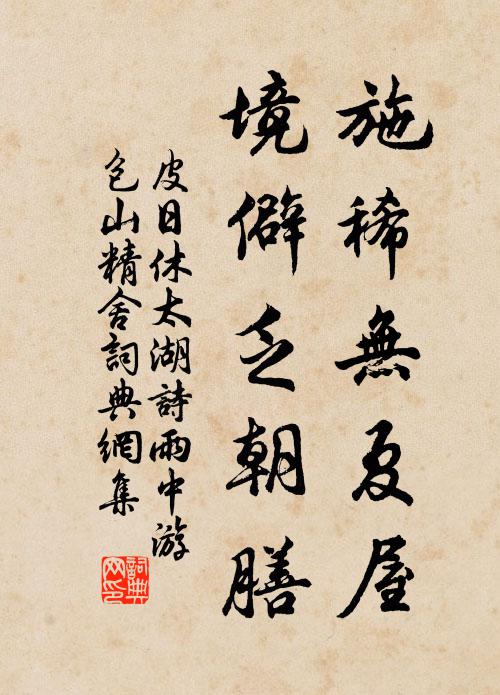 施稀無夏屋
境僻乏朝膳
皮日休太湖詩雨中游
包山精舍詞典網集
詞典网印